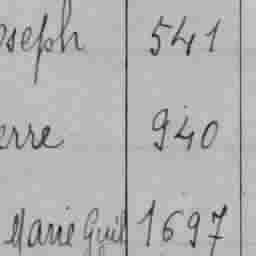 oseph 541
erre 940
Marie Guil 1697